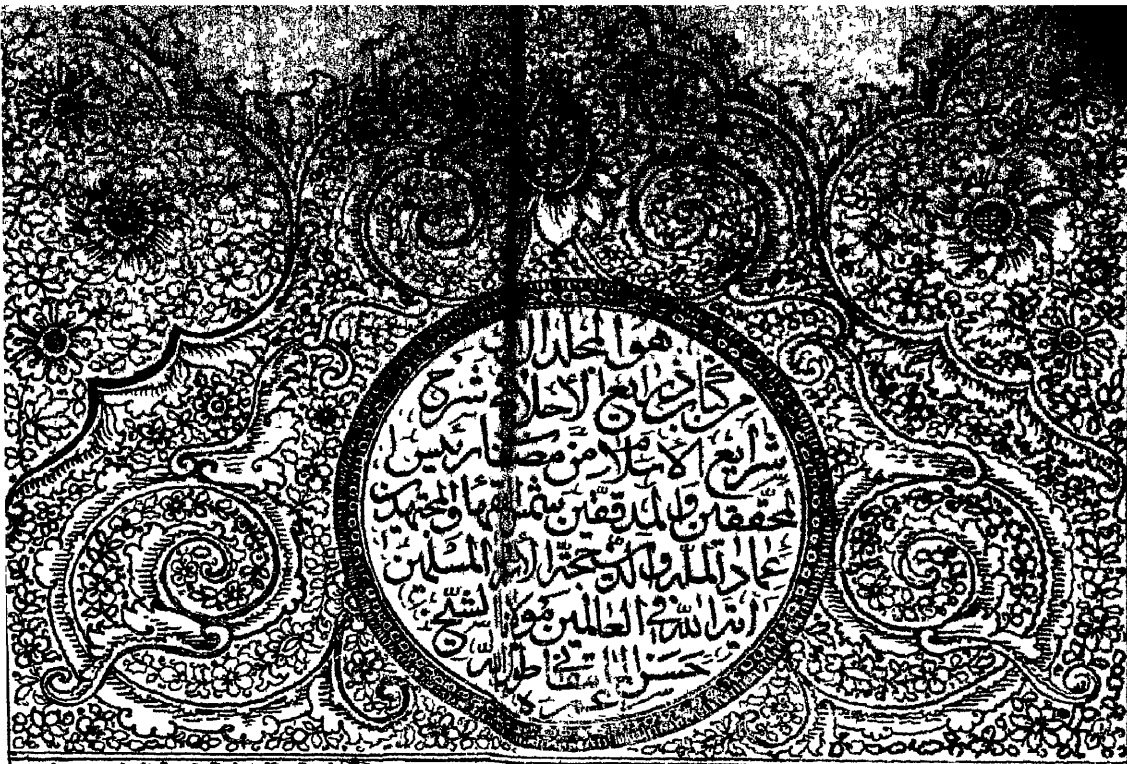 هو المجلد
من كتاب ذرايع الاحلام في شرح
شرايع الاسلام من مصنفات رئيس
المحققين والمدققين شمس الفقهاء والمجتهدين
عماد الملة والدين حجة الاسلام والمسلمين
اية الله في العالمين مولانا الشيخ
حسن المامقاني طول الله
عمره